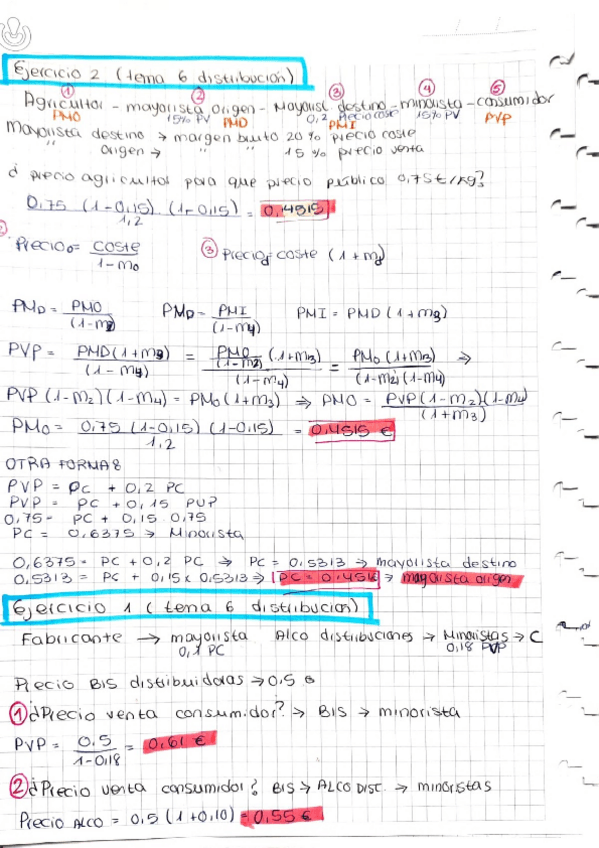 Ejercicio 2 (tema 6 distribución)
① ② ③ ④ ⑤
Agricultor - mayorista origen - Mayorist. destino - minorista - consumidor
PMO 15% PV PMD 0,2 Precio coste PMI 15% PV PVP
Mayorista destino → margen bruto 20% precio coste
" origen → " " 15% precio venta
¿ precio agricultor para que precio público 0,75 €/kg?
0,75 (1-0,15) (1-0,15) / 1,2 = 0,4515
② Precio₀ = coste / 1-m₀ ③ Precio = coste (1+m)
PMD = PMO / (1-m2) PMD = PMI / (1-m4) PMI = PMD (1+m3)
PVP = PMD(1+m3) / (1-m4) = PMO / (1-m2) (1+m3) / (1-m4) = PMO (1+m3) / (1-m2)(1-m4) ⇒
PVP (1-m2)(1-m4) = PMO (1+m3) ⇒ PMO = PVP(1-m2)(1-m4) / (1+m3)
PMO = 0,75 (1-0,15) (1-0,15) / 1,2 = 0,4515 €
OTRA FORMA:
PVP = PC + 0,2 PC
PVP = PC + 0,15 PVP
0,75 = PC + 0,15 0,75
PC = 0,6375 → Minorista
0,6375 = PC + 0,2 PC ⇒ PC = 0,5313 → mayorista destino
0,5313 = PC + 0,15 x 0,5313 → PC = 0,451€ → mayorista origen
Ejercicio 1 (tema 6 distribución)
Fabricante → mayorista Alco distribuciones → Minoristas → C
0,1 PC 0,18 PVP
Precio BIS distribuidoras → 0,5 €
① ¿Precio venta consumidor? → BIS → minorista
PVP = 0,5 / 1-0,18 = 0,61 €
② ¿Precio venta consumidor? BIS → ALCO DISC. → minoristas
Precio ALCO = 0,5 (1+0,10) = 0,55 €